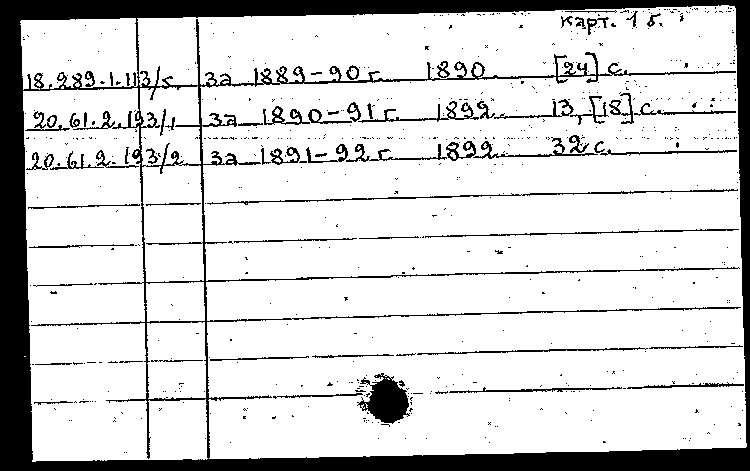 карт. 1 б.
18.289.1.113/5. за 1889-90 г. 1890. [24] с.
20.61.2.193/1 за 1890-91 г. 1892. 13, [18] с.
20.61.2.193/2 за 1891-92 г. 1892. 32 с.